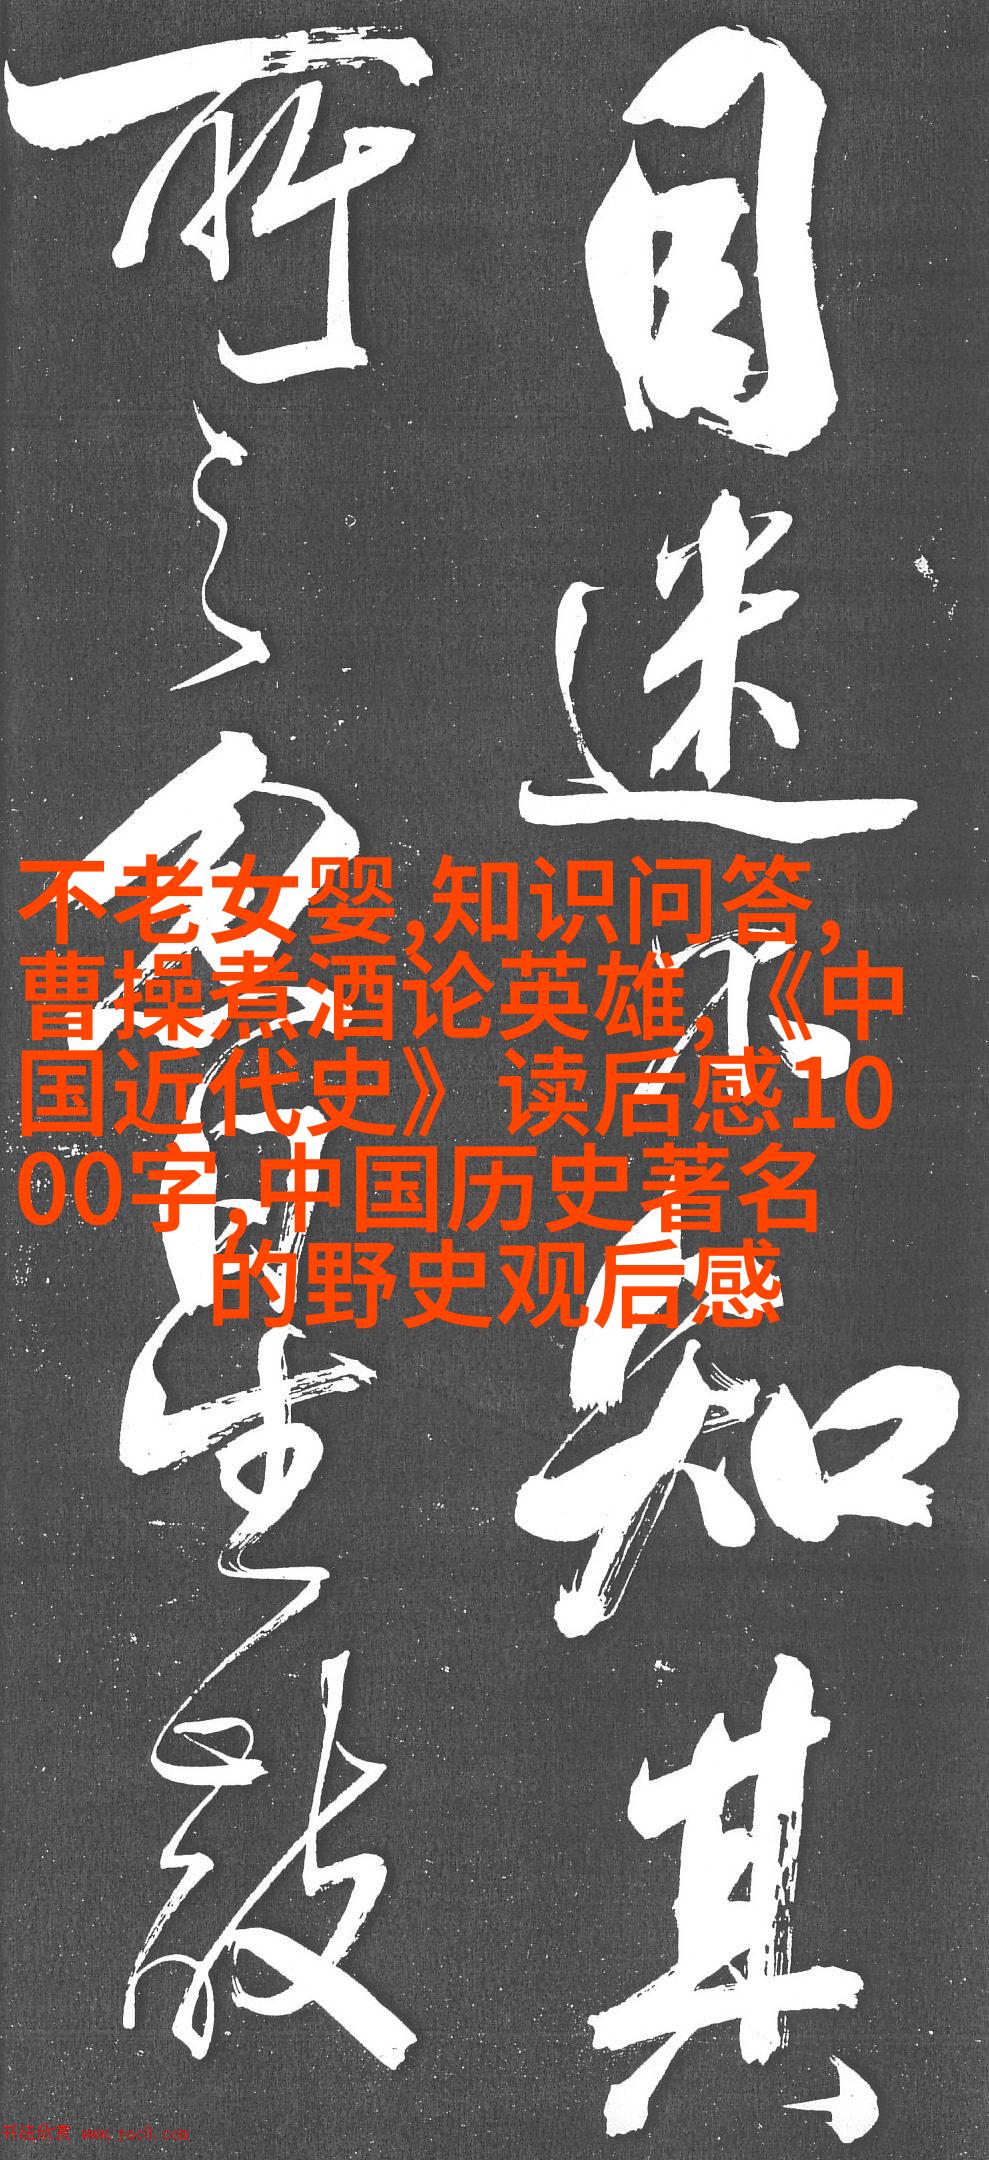 目迷不知其
所之忽生敬
不老女婴,知识问答,
曹操煮酒论英雄,《中
国近代史》 读后感10
00字,中国历史著名
的野史观后感
书法欣赏 www.yac8.com